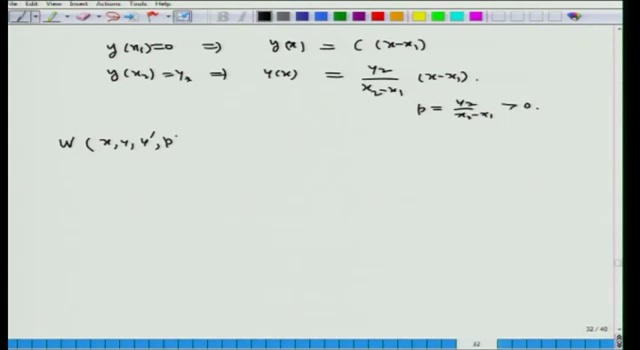 File Edit View Insert Actions Tools Help
y(x₁)=0 ⇒ y(x) = C (x-x₁)
y(x₂) = y₂ ⇒ y(x) = y₂/(x₂-x₁) (x-x₁).
p = y₂/(x₂-x₁) > 0.
W (x, y, y', p
32 / 40
32